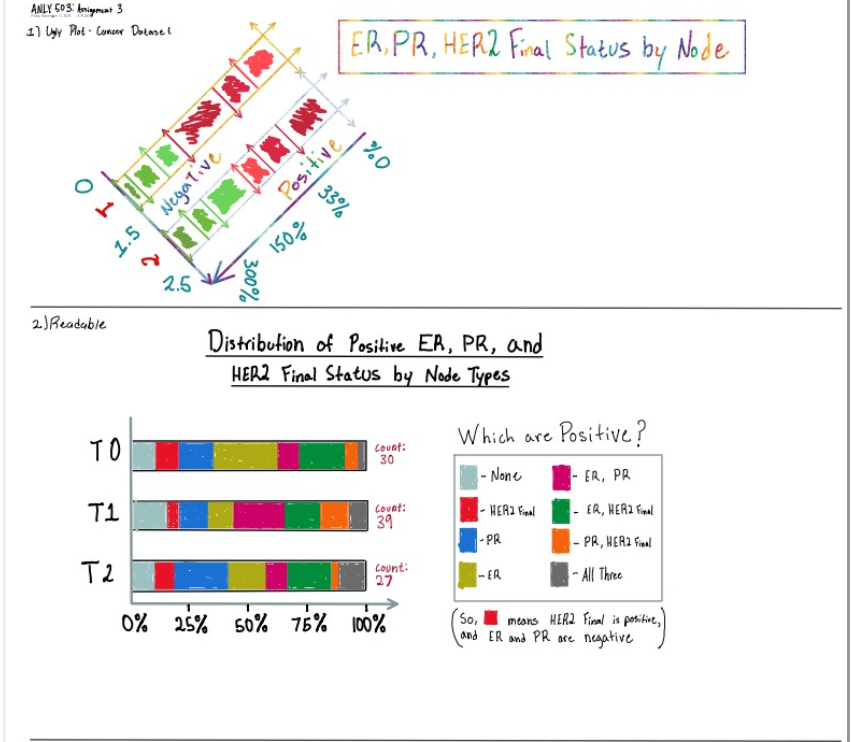 ANLY 503: Assignment 3
1) Ugly Plot - Cancer Dataset
ER, PR, HER2 Final Status by Node
Negative
Positive
0
1
1.5
2
2.5
%0
33%
150%
300%
2) Readable
Distribution of Positive ER, PR, and
HER2 Final Status by Node Types
T0
Count:
30
T1
Count:
39
T2
Count:
27
0% 25% 50% 75% 100%
Which are Positive?
- None
- ER, PR
- HER2 Final
- ER, HER2 Final
- PR
- PR, HER2 Final
- ER
- All Three
(So, means HER2 Final is positive,
and ER and PR are negative)